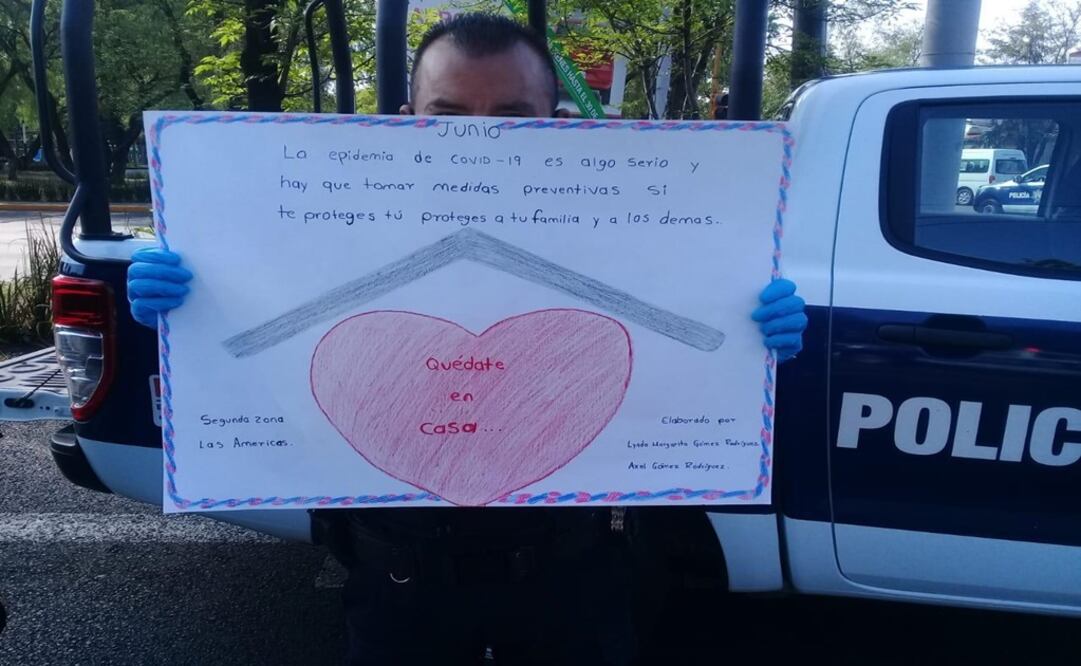 Junio
La epidemia de COVID-19 es algo serio y
hay que tomar medidas preventivas si
te proteges tú proteges a tu familia y a los demas.
Quédate
en
casa...
Segunda zona
Las Americas.
Elaborado por
Lynda Margarita Gómez Rodríguez
Axel Gómez Rodríguez.
POLIC
POLICÍA